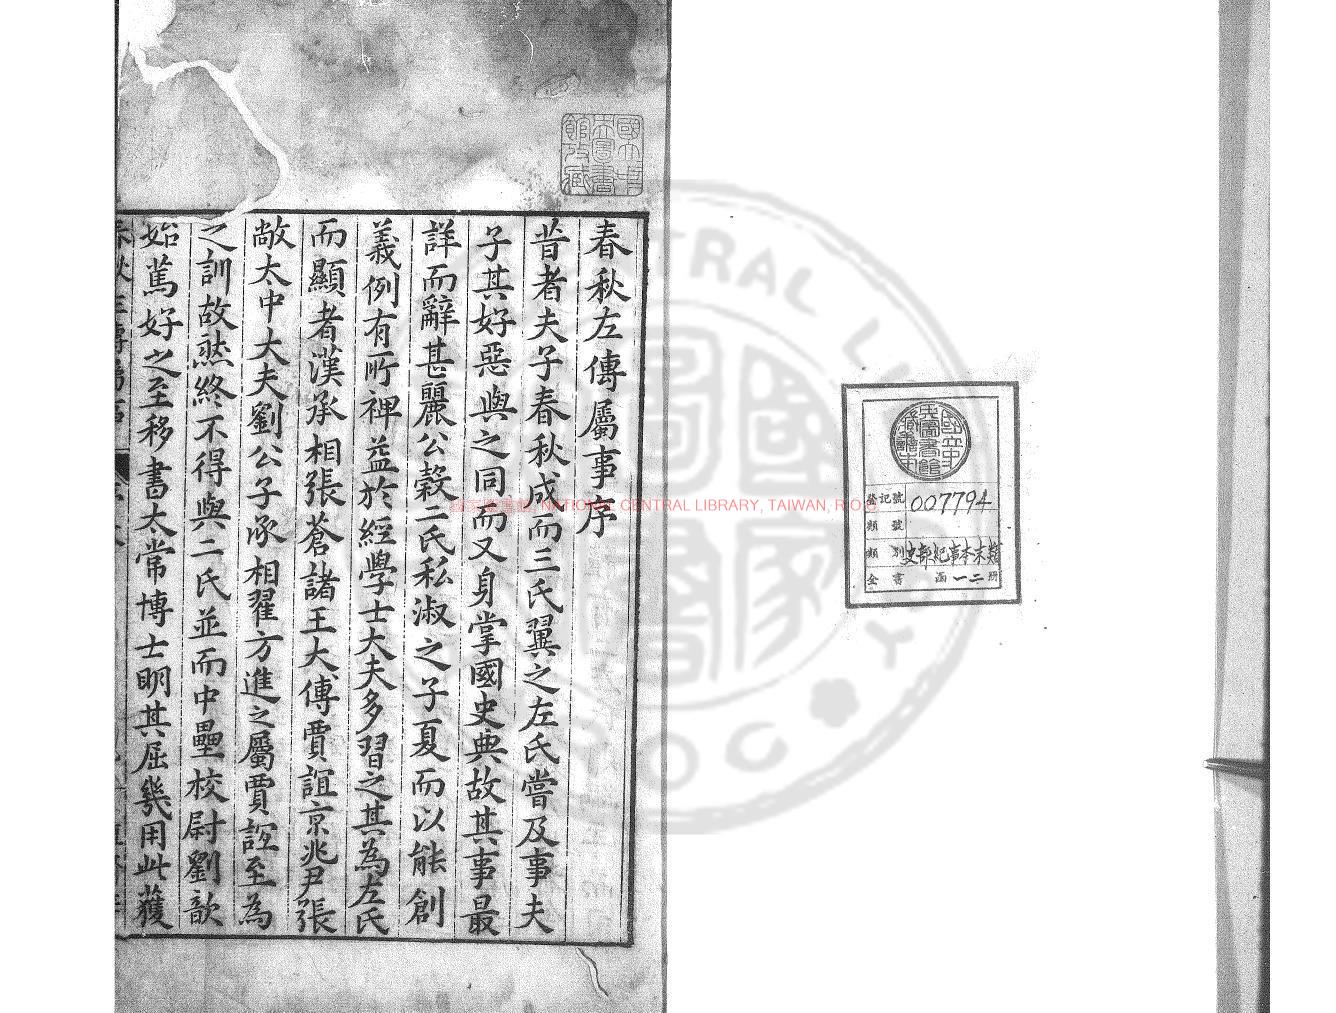 春秋左傳屬事序
昔者夫子春秋成而三氏翼之左氏嘗及事夫
子其好惡與之同而又身掌國史典故其事最
詳而辭甚麗公穀二氏私淑之子夏而以能創
義例有所裨益於經學士大夫多習之其為左氏
而顯者漢承相張蒼諸王大傅賈誼京兆尹張
敞太中大夫劉公子承相翟方進之屬賈誼至為
之訓故然終不得與二氏並而中壘校尉劉歆
始篤好之至移書太常博士明其屈幾用此獲
國立中央圖書館收藏
登記號 007794
類號
類別 史部紀事本末類
全書 函一二册
NATIONAL CENTRAL LIBRARY, TAIWAN, R.O.C.